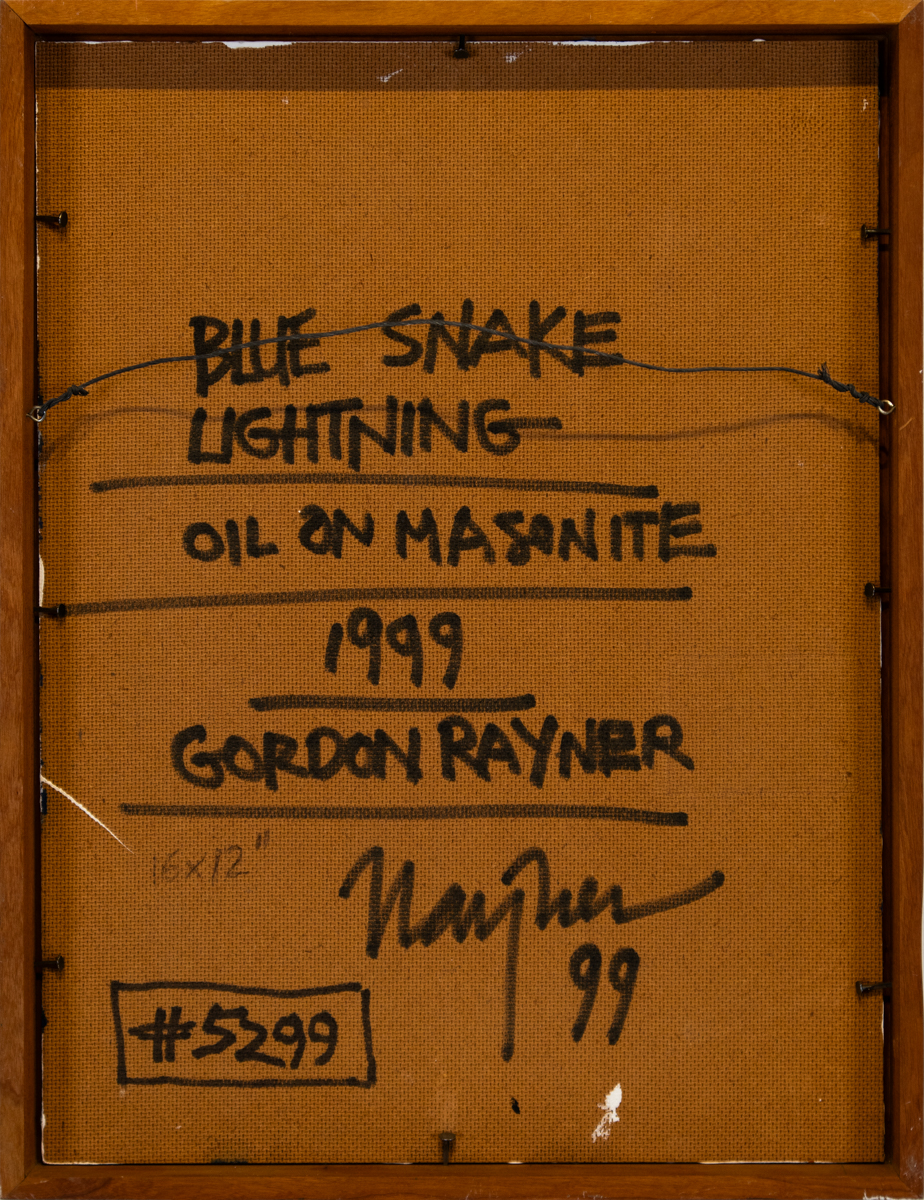 BLUE SNAKE
LIGHTNING
OIL ON MASONITE
1999
GORDON RAYNER
16x12"
Rayner
99
#5299